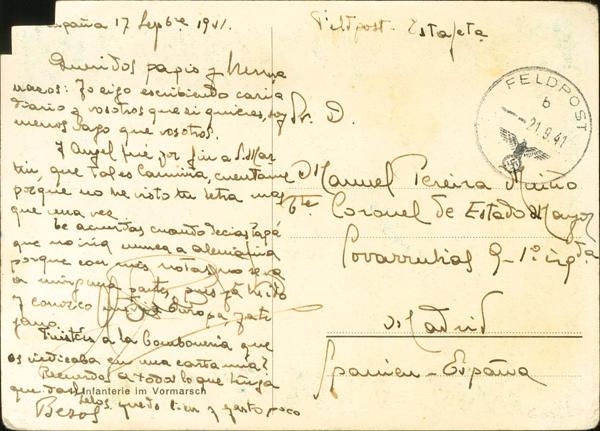 España 17 Sepbre 1941.
Queridos papis y herma
nazos: Yo sigo escribiendo cari a
diario y vosotros que si quieres, soy
menos vago que vosotros.
Y Angel fué por fin a S. Mar
tin, que tal es Camina, cuentame
porque no he visto tu letra mas
que una vez.
Te acuerdas cuando decias papá
que no iria nunca a Alemania
porque con mis notas no se va
a ninguna parte, pues ya he ido
y conozco Europa y ate
jano.
Fuisteis a la Bomboneria que
os indicaba en una carta mia?
Recuerdos a todos lo que tenga
que darlos, quedo bien y gasto poco
Besos
Infanterie im Vormarsch
Feldpost - Estafeta
FELDPOST
b
21.9.41
Sr. D.
Manuel Pereira Miño
Tte. Coronel de Estado Mayor
Covarrubias 9 - 1º izqda
Madrid
Spanien - España